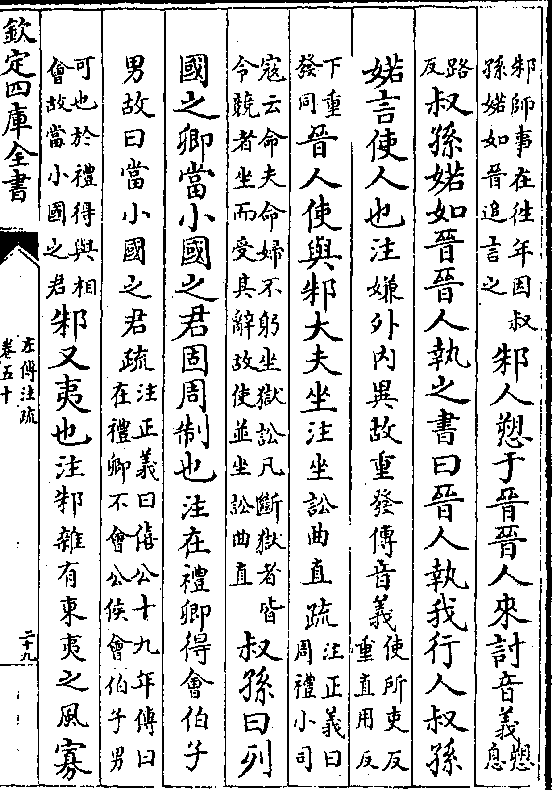 邾師事在徃年因叔
孫婼如晉追言之
邾人愬于晉晉人來討音義
愬
息
路
反
叔孫婼如晉晉人執之書曰晉人執我行人叔孫
婼言使人也注嫌外内異故重發傳音義
使所吏反
重直用反
下重
發同
晉人使與邾大夫坐注坐訟曲直疏
注正義曰
周禮小司
寇云命夫命婦不躬坐獄訟凡斷獄者皆
令競者坐而受其辭故使並坐訟曲直
叔孫曰列
國之卿當小國之君固周制也注在禮卿得會伯子
男故曰當小國之君疏
注正義曰僖公十九年傳曰
在禮卿不會公侯會伯子男
可也於禮得與相
會故當小國之君
邾又夷也注邾雜有東夷之風寡
欽定四庫全書
左傳注疏
卷五十
二十九